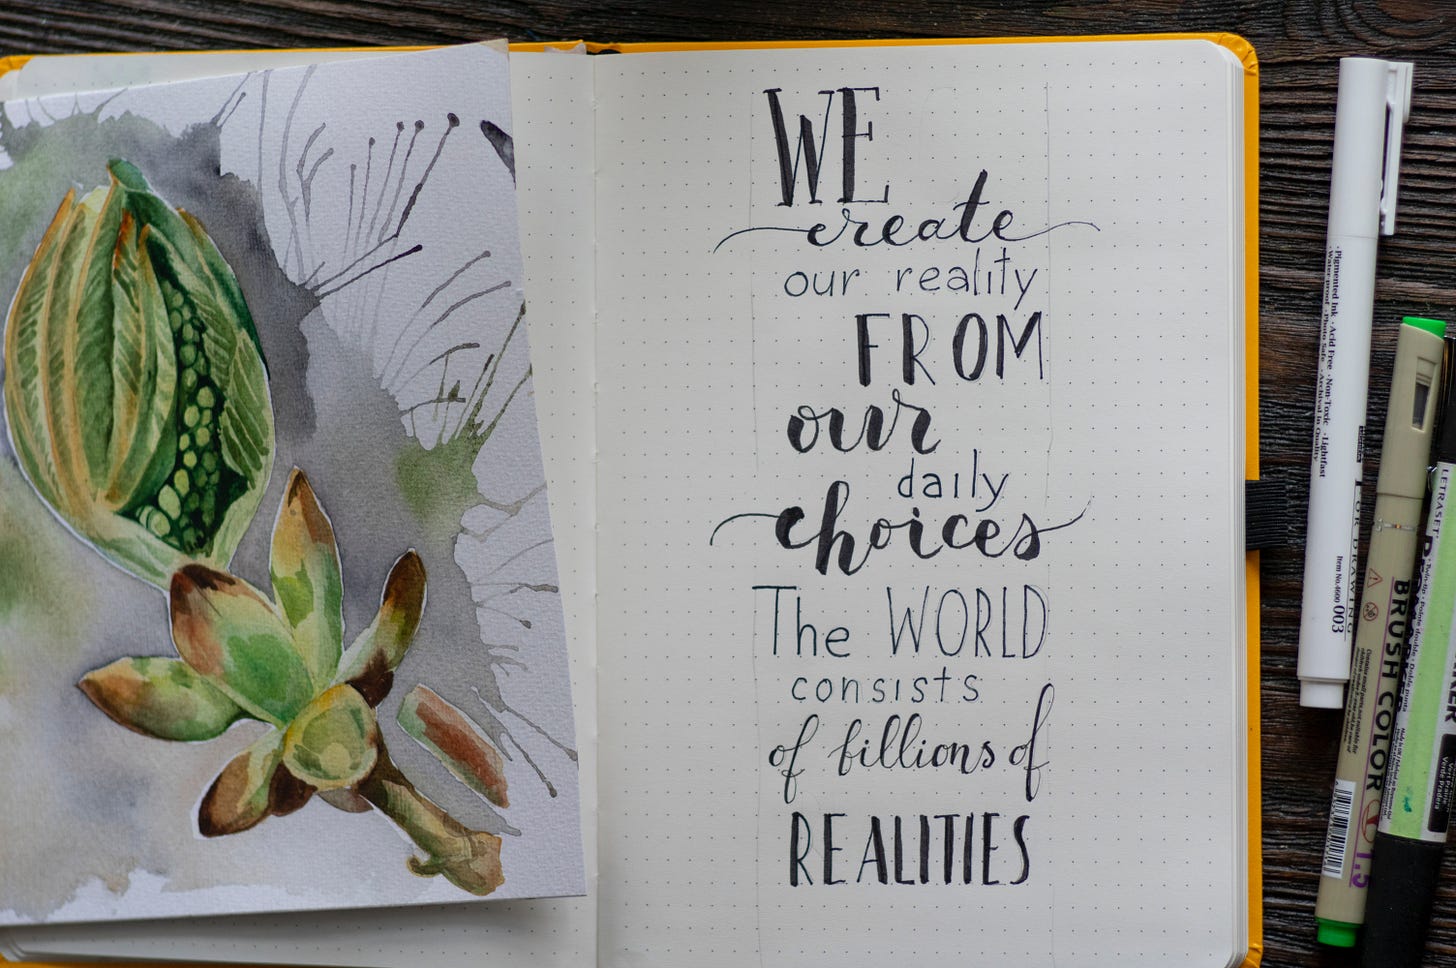 WE
create
our reality
FROM
our
daily
choices
The WORLD
consists
of billions of
REALITIES
· Pigmented Ink · Acid Free · Non-Toxic · Lightfast
· Water proof · Photo Safe · Archival in Quality
FOR DRAWING
Item No.4600 003
BRUSH COLOR
1.5
LETRASET